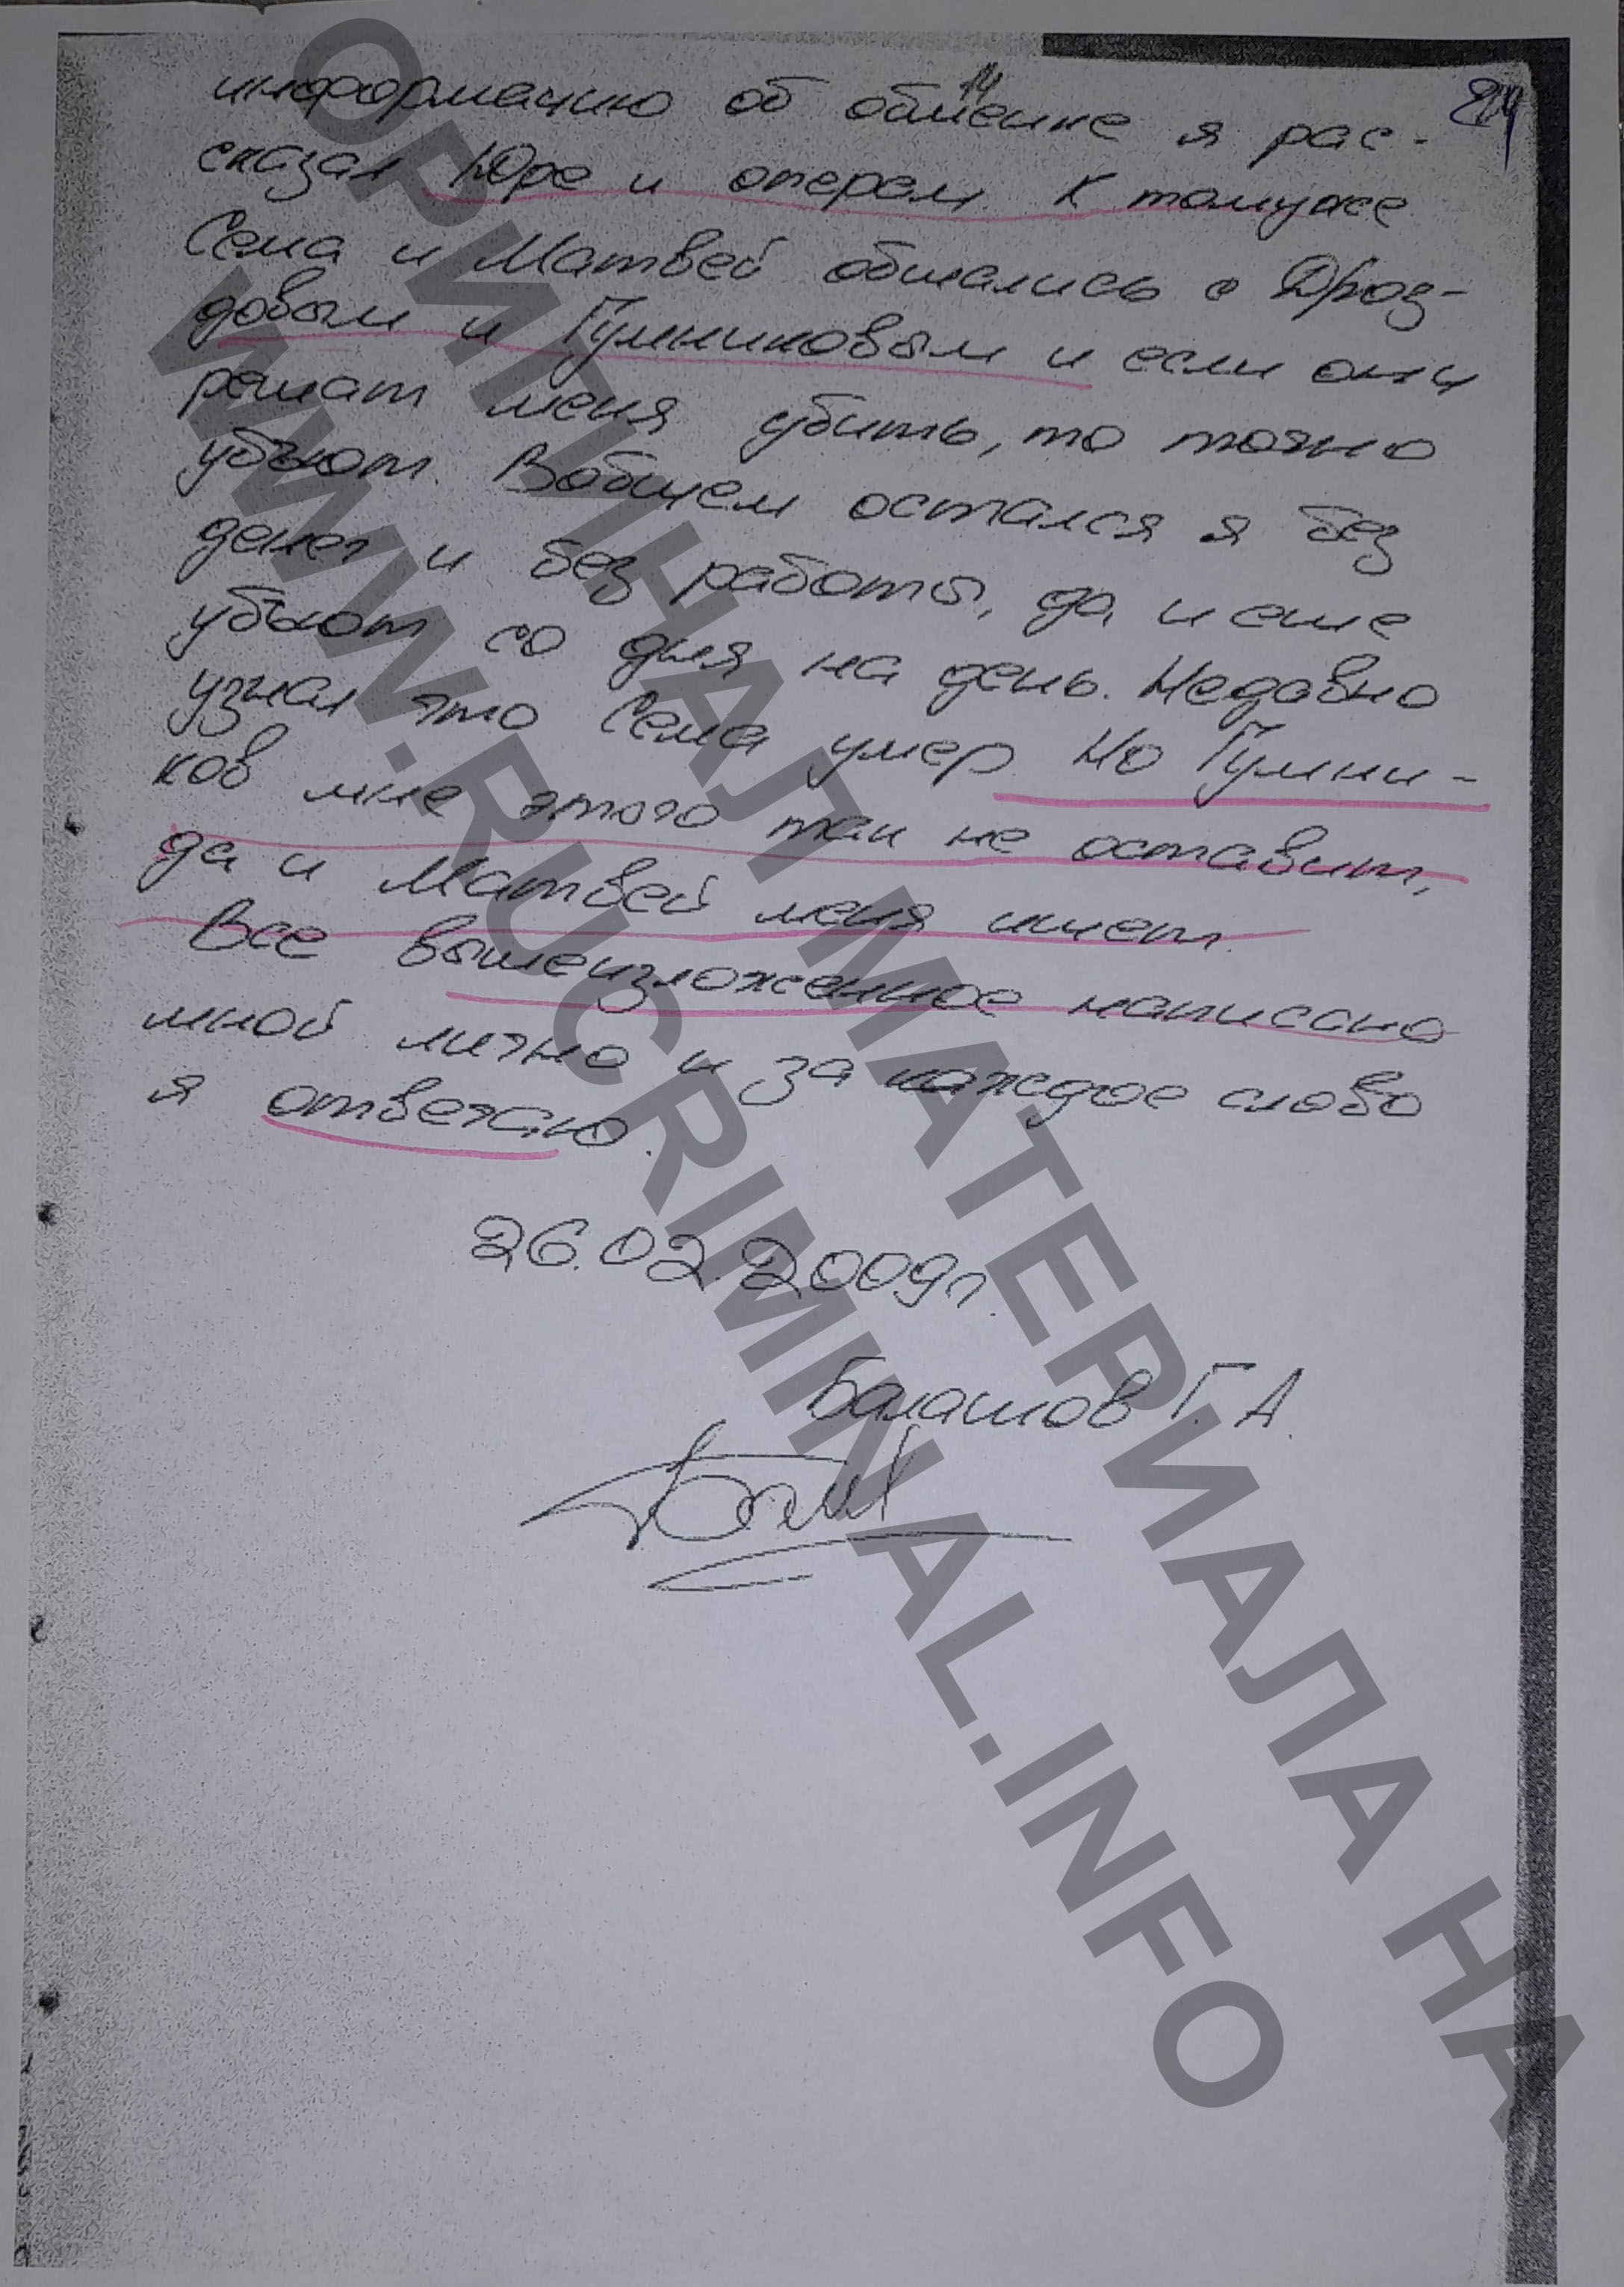 14
информацию об обмене я рас-
сказал Юре и операм. К томуже
Сема и Матвей общались с Дроз-
довым и Гулниковым и если они
решат меня убить, то точно
убъют. Вобщем остался я без
денег и без работы, да и еще
убъют со дня на день. Недавно
узнал что Сема умер. Но Гулни-
ков мне этого так не оставит,
да и Матвей меня ищет.
Все вышеизложенное написано
мной лично и за каждое слово
я отвечаю.
26.02.2009г.
Балашов Г.А.
ОРИГИНАЛ МАТЕРИАЛА НА
WWW.RUCRIMINAL.INFO